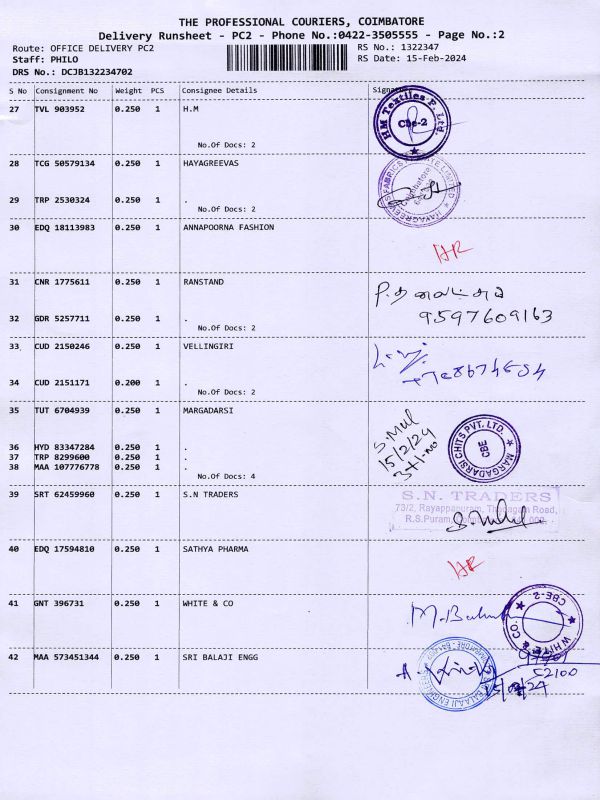 THE PROFESSIONAL COURIERS, COIMBATORE
Delivery Runsheet - PC2 - Phone No.:0422-3505555 - Page No.:2
Route: OFFICE DELIVERY PC2
Staff: PHILO
DRS No.: DCJB132234702
RS No.: 1322347
RS Date: 15-Feb-2024
S No Consignment No Weight PCS Consignee Details
27 TVL 903952 0.250 1 H.M
HM Textiles P. Ltd.
CBe-2
No.Of Docs: 2
28 TCG 50579134 0.250 1 HAYAGREEVAS
29 TRP 2530324 0.250 1 .
No.Of Docs: 2
30 EDQ 18113983 0.250 1 ANNAPOORNA FASHION
HR
31 CNR 1775611 0.250 1 RANSTAND
32 GDR 5257711 0.250 1 .
9597609163
No.Of Docs: 2
33 CUD 2150246 0.250 1 VELLINGIRI
34 CUD 2151171 0.200 1 .
No.Of Docs: 2
35 TUT 6704939 0.250 1 MARGADARSI
15/2/24
MARGADARSI CHITS PVT. LTD.
CBE
36 HYD 83347284 0.250 1 .
37 TRP 8299600 0.250 1 .
38 MAA 107776778 0.250 1 .
No.Of Docs: 4
39 SRT 62459960 0.250 1 S.N TRADERS
S.N. TRADERS
73/2, Rayappapuram, Road,
R.S.Puram,
40 EDQ 17594810 0.250 1 SATHYA PHARMA
HR
41 GNT 396731 0.250 1 WHITE & CO
WHITE & CO. CBE-2
42 MAA 573451344 0.250 1 SRI BALAJI ENGG
52100